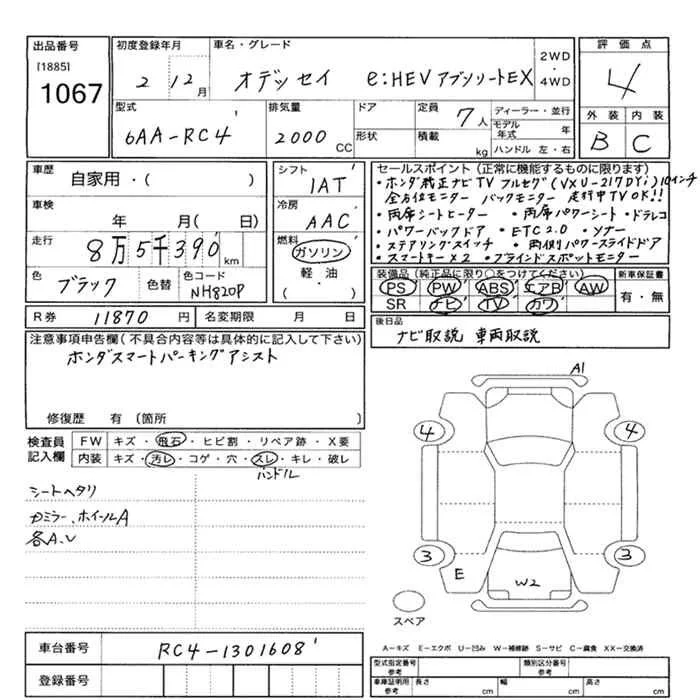 出品番号
[1885]
1067
初度登録年月
2 12月
車名・グレード
オデッセイ e:HEV アブソリュートEX
2WD
・
4WD
評価点
4
外装 内装
B C
型式
6AA-RC4
排気量
2000 CC
ドア
形状
定員
7人
積載
kg
ディーラー・並行
モデル年式 年
ハンドル 左・右
車歴
自家用・( )
車検
年 月( 日)
走行
8万5千390km
色
ブラック
色替
色コード
NH820P
シフト
1AT
冷房
AAC
燃料
ガソリン
軽・油
・( )
セールスポイント(正常に機能するものに限ります)
・ホンダ純正ナビTV フルセグ(VXU-217DYi)10インチ
全方位モニター バックモニター 走行中TVOK!!
・両席シートヒーター ・両席パワーシート・ドラレコ
・パワーバックドア ・ETC2.0 ・ソナー
・ステアリングスイッチ ・両側パワースライドドア
・スマートキー×2 ・ブラインドスポットモニター
装備品(純正品に限り○をつけてください)
PS PW ABS エアB AW
SR ナビ TV カワ
新車保証書
有・無
R券 11870円
名変期限 月 日
後日品
ナビ取説 車両取説
注意事項申告欄(不具合内容等は具体的に記入して下さい)
ホンダスマートパーキングアシスト
修復歴 有(箇所 )
検査員記入欄
FW キズ・飛石・ヒビ割・リペア跡・X要
内装 キズ・汚レ・コゲ・穴・スレ・キレ・破レ
ハンドル
シートヘタリ
ドミラー、ホイールA
各A、U
A1
4 4
3 3
E
W2
スペア
車台番号 RC4-1301608
登録番号
A-キズ E-エクボ U-凹み W-補修跡 S-サビ C-腐食 XX-交換済
型式指定番号 参考
類別区分番号 参考
車庫証明用 参考
長さ cm
幅 cm
高さ cm